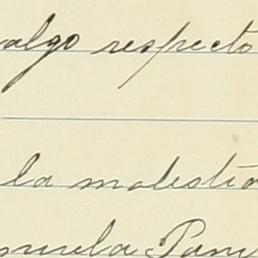 algo respecto
la molestia